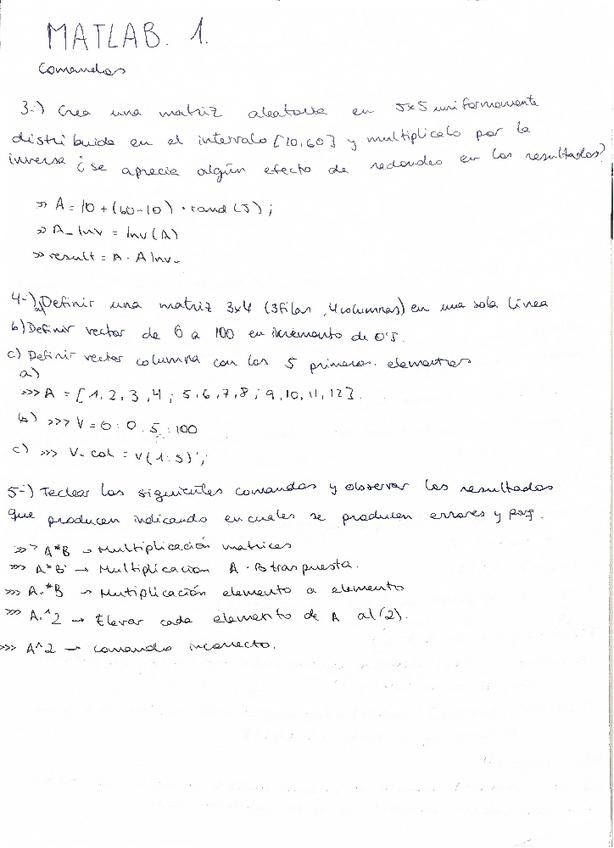 MATLAB. 1.
Comandos
3-) Crea una matriz aleatoria en 5x5 uniformemente
distribuida en el intervalo [10,60] y multiplicalo por la
inversa ¿se aprecia algún efecto de redondeo en los resultados?
>> A = 10 + (60-10) · rand(5);
>> A_inv = inv(A)
>> result = A · AInv_
4-) a) Definir una matriz 3x4 (3filas, 4columnas) en una sola línea
b) Definir vector de 0 a 100 en incremento de 0'5.
c) Definir vector columna con los 5 primeros elementos
a)
>>> A = [1,2,3,4; 5,6,7,8; 9,10,11,12].
b) >>> V = 0:0.5:100
c) >>> V_col = V(1:5)';
5-) Teclear los siguientes comandos y observar los resultados
que producen indicando en cuales se producen errores y porq.
>>> A*B → Multiplicación matrices
>>> A*B' → Multiplicacion A · B traspuesta.
>>> A.*B → Mutiplicación elemento a elemento
>>> A.^2 → Elevar cada elemento de A al (2).
>>> A^2 → comando incorrecto.